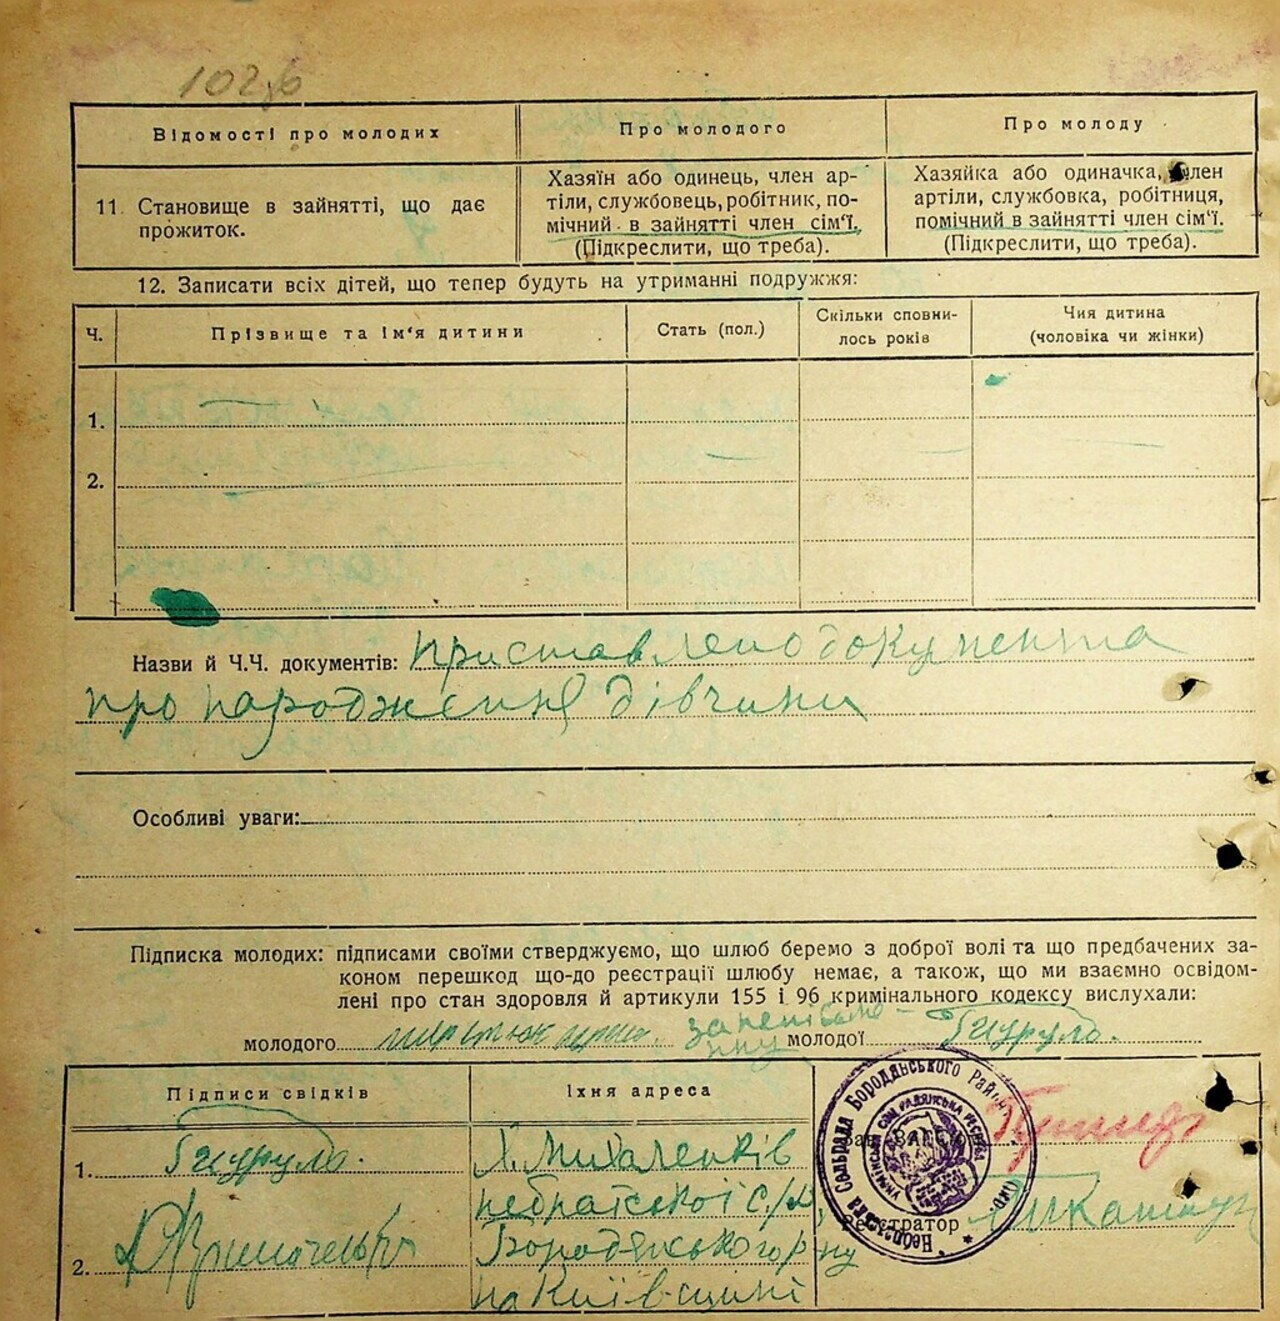 Відомості про молодих
Про молодого
Про молоду
11. Становище в зайнятті, що дає
прожиток.
Хазяїн або одинець, член ар-
тіли, службовець, робітник, по-
мічний в зайнятті член сім'ї.
(Підкреслити, що треба).
Хазяйка або одиначка, член
артіли, службовка, робітниця,
помічний в зайнятті член сім'ї.
(Підкреслити, що треба).
12. Записати всіх дітей, що тепер будуть на утриманні подружжя:
Ч.
Прізвище та ім'я дитини
Стать (пол.)
Скільки сповни-
лось років
Чия дитина
(чоловіка чи жінки)
1.
2.
Назви й Ч.Ч. документів: приставлено документа
про народження дівчини
Особливі уваги:
Підписка молодих: підписами своїми стверджуємо, що шлюб беремо з доброї волі та що предбачених за-
коном перешкод що-до реєстрації шлюбу немає, а також, що ми взаємно освідом-
лені про стан здоровля й артикули 155 і 96 кримінального кодексу вислухали:
молодого
молодої
Підписи свідків
Їхня адреса
1.
Х. Михаленків
небратської с/р,
2.
Бородянського р-ну
на Київщині
Реєстратор
Сельрада Бородянського Району